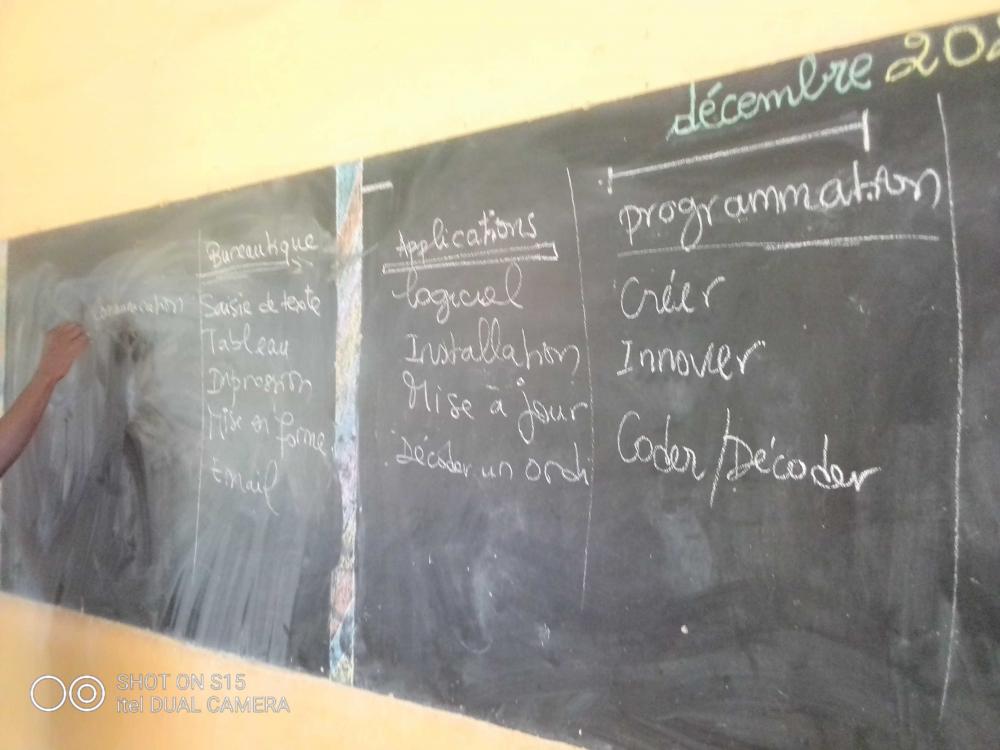 décembre 202
Communication
Bureautique
Saisie de texte
Tableau
Impression
Mise en forme
Email
Applications
Logiciel
Installation
Mise à jour
Décoder un ordi
programmation
Créer
Innover
Coder/Décoder
SHOT ON S15
itel DUAL CAMERA